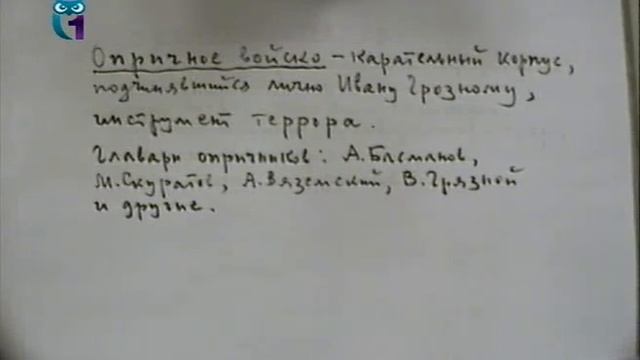 1
Опричное войско – карательный корпус,
подчинявшийся лично Ивану Грозному,
инструмент террора.
Главари опричников: А.Басманов,
М.Скуратов, А.Вяземский, В.Грязной
и другие.